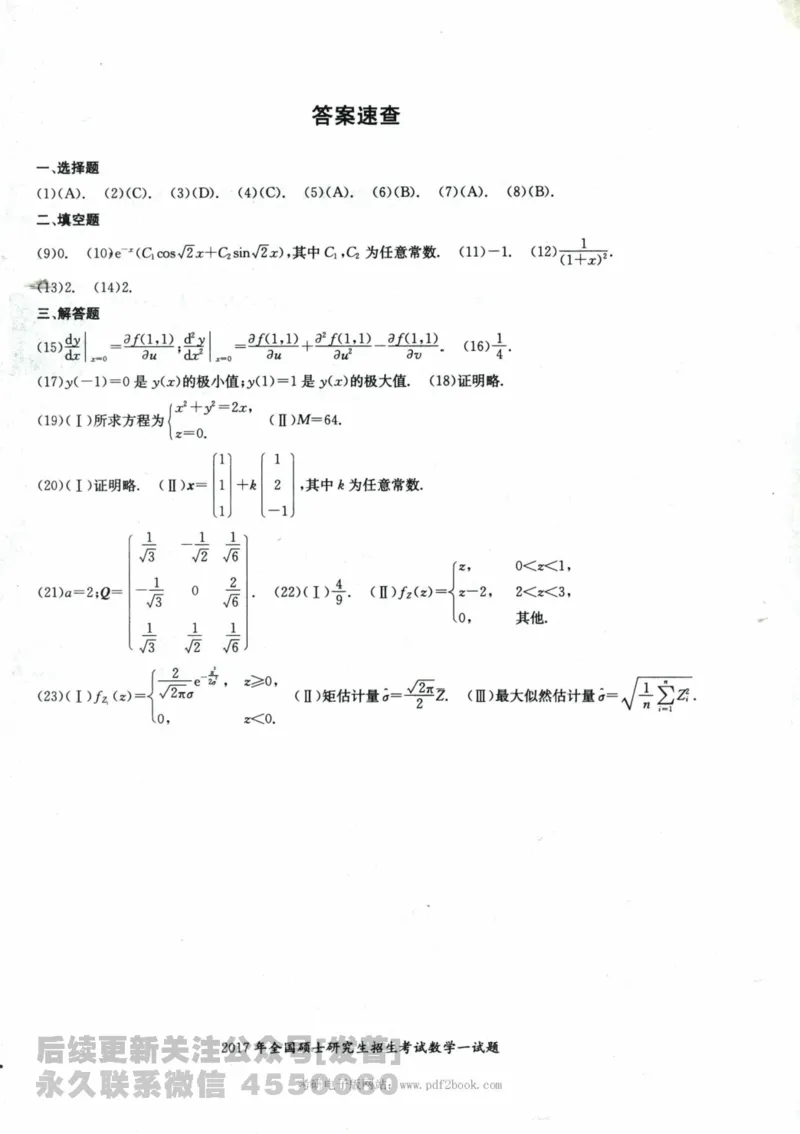 答案速查
一、选择题
(1)(A). (2)(C). (3)(D). (4)(C). (5)(A). (6)(B). (7)(A). (8)(B).
二、填空题
(9)0. (10)e^{-x}(C₁cos√2x+C₂sin√2x),其中 C₁,C₂ 为任意常数. (11)-1. (12)\frac{1}{(1+x)^2}.
(13)2. (14)2.
三、解答题
(15)\frac{dy}{dx}|_{x=0}=\frac{∂f(1,1)}{∂u};\frac{d²y}{dx²}|_{x=0}=\frac{∂f(1,1)}{∂u}+\frac{∂²f(1,1)}{∂u²}-\frac{∂f(1,1)}{∂v}. (16)\frac{1}{4}.
(17)y(-1)=0 是 y(x)的极小值;y(1)=1 是 y(x)的极大值. (18)证明略.
(19)(Ⅰ)所求方程为\begin{cases}x²+y²=2x,\\z=0.\end{cases} (Ⅱ)M=64.
(20)(Ⅰ)证明略. (Ⅱ)x=\begin{pmatrix}1\\1\\1\end{pmatrix}+k\begin{pmatrix}1\\2\\-1\end{pmatrix},其中 k 为任意常数.
(21)a=2;Q=\begin{pmatrix}\frac{1}{√3}&-\frac{1}{√2}&\frac{1}{√6}\\-\frac{1}{√3}&0&\frac{2}{√6}\\\frac{1}{√3}&\frac{1}{√2}&\frac{1}{√6}\end{pmatrix}. (22)(Ⅰ)\frac{4}{9}. (Ⅱ)f_Z(z)=\begin{cases}z,&0<z<1,\\z-2,&2<z<3,\\0,&其他.\end{cases}
(23)(Ⅰ)f_{Z_i}(z)=\begin{cases}\frac{2}{\sqrt{2π}σ}e^{-\frac{z²}{2σ²}},&z≥0,\\0,&z<0.\end{cases} (Ⅱ)矩估计量\hat{σ}=\frac{\sqrt{2π}}{2}\bar{Z}. (Ⅲ)最大似然估计量\hat{σ}=\sqrt{\frac{1}{n}\sum_{i=1}^{n}Z_i²}.
后续更新关注公众号[发普]
2017年全国硕士研究生招生考试数学一试题
永久联系微信 4550060
www.pdf2book.com